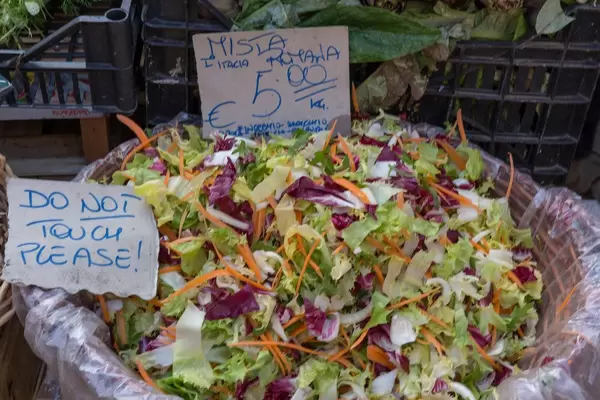 MISTA ROMANA
5,00
€ KG.
DO NOT
TOUCH
PLEASE!